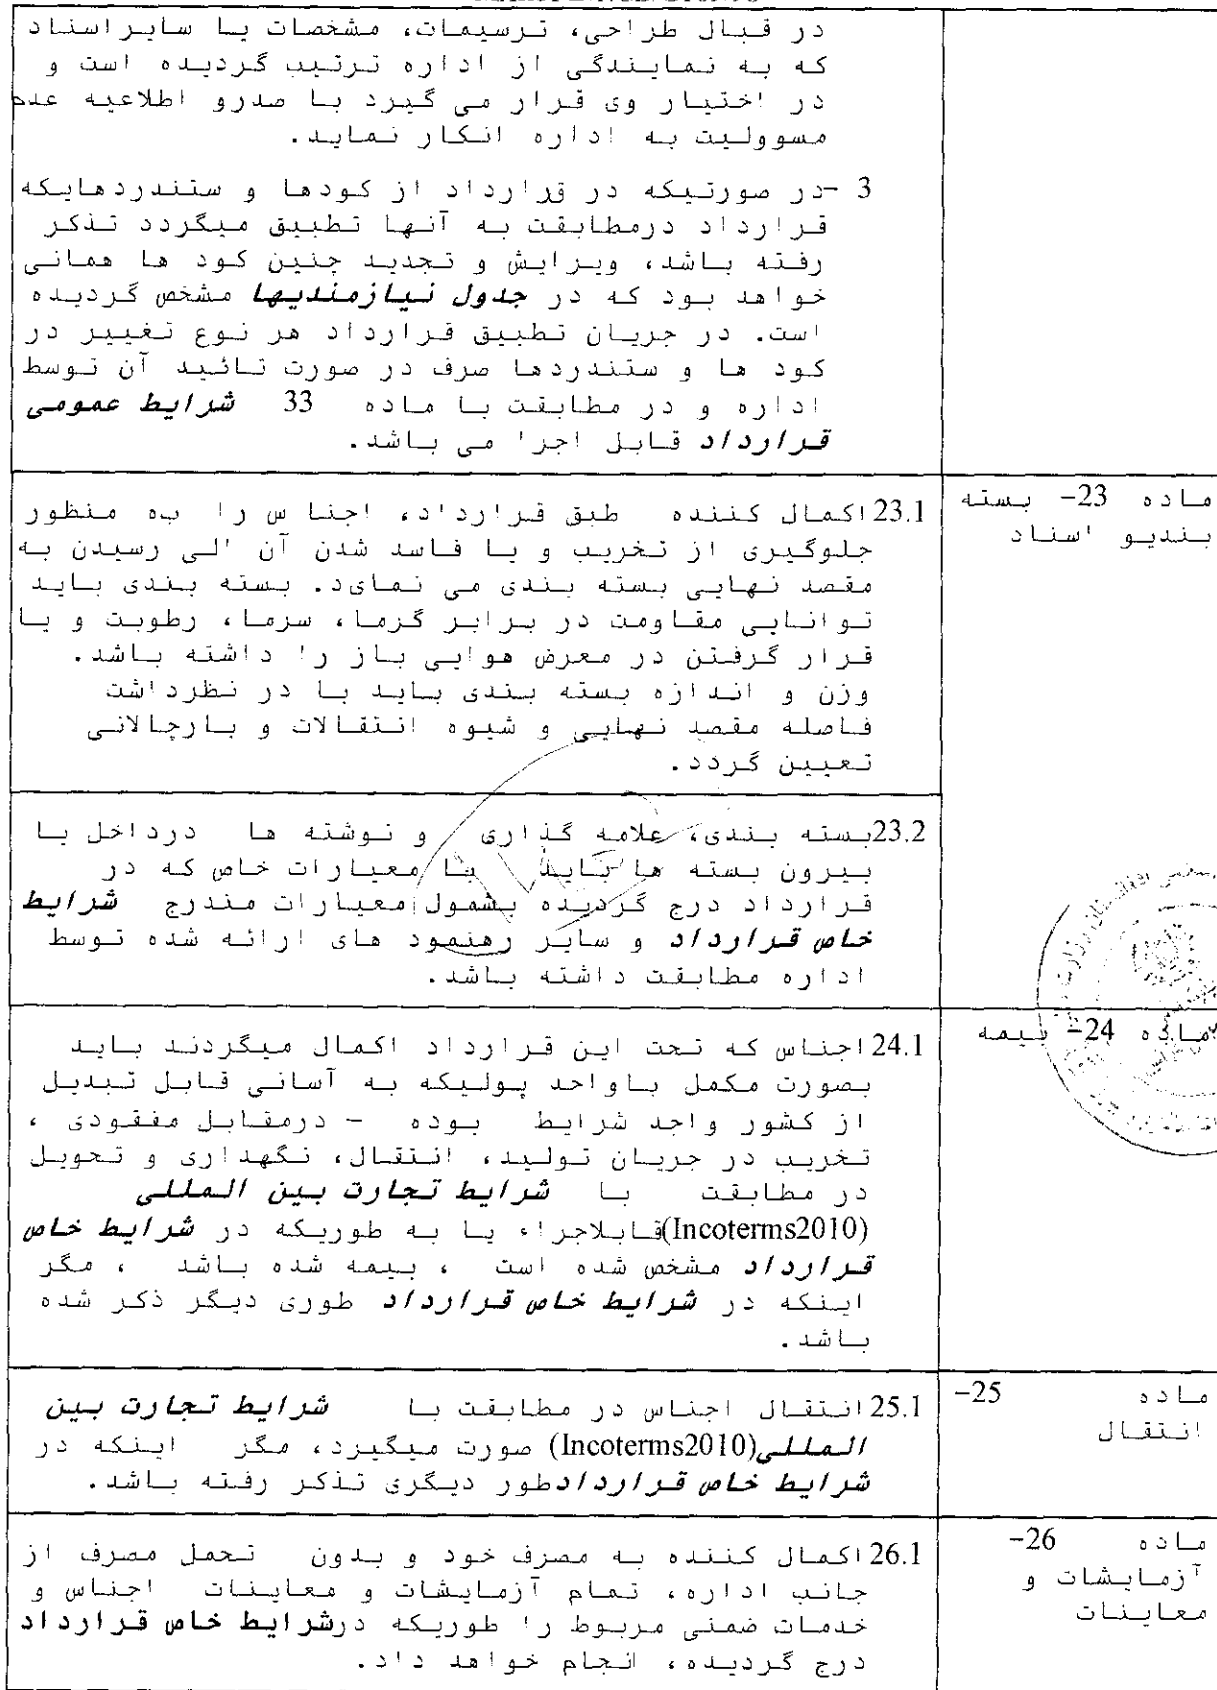 در قبال طراحی، ترسیمات، مشخصات یا سایر اسناد
که به نمایندگی از اداره ترتیب گردیده است و
در اختیار وی قرار می گیرد با صدرو اطلاعیه عدم
مسوولیت به اداره انکار نماید.
3 -در صورتیکه در قرارداد از کودها و ستندردهایکه
قرارداد درمطابقت به آنها تطبیق میگردد تذکر
رفته باشد، ویرایش و تجدید چنین کود ها همانی
خواهد بود که در جدول نیازمندیها مشخص گردیده
است. در جریان تطبیق قرارداد هر نوع تغییر در
کود ها و ستندردها صرف در صورت تائید آن توسط
اداره و در مطابقت با ماده 33 شرایط عمومی
قرارداد قابل اجرا می باشد.
ماده 23- بسته
بندیو اسناد
23.1 اکمال کننده طبق قرارداد، اجنا س را به منظور
جلوگیری از تخریب و یا فاسد شدن آن الی رسیدن به
مقصد نهایی بسته بندی می نماید. بسته بندی باید
توانایی مقاومت در برابر گرما، سرما، رطوبت و یا
قرار گرفتن در معرض هوایی باز را داشته باشد.
وزن و اندازه بسته بندی باید با در نظرداشت
فاصله مقصد نهایی و شیوه انتقالات و بارچالانی
تعیین گردد.
23.2 بسته بندی، علامه گذاری و نوشته ها درداخل یا
بیرون بسته ها باید با معیارات خاص که در
قرارداد درج گردیده بشمول معیارات مندرج شرایط
خاص قرارداد و سایر رهنمود های ارائه شده توسط
اداره مطابقت داشته باشد.
ماده 24- بیمه
24.1 اجناس که تحت این قرارداد اکمال میگردند باید
بصورت مکمل باواحد پولیکه به آسانی قابل تبدیل
از کشور واجد شرایط بوده – درمقابل مفقودی ،
تخریب در جریان تولید، انتقال، نگهداری و تحویل
در مطابقت با شرایط تجارت بین المللی
(Incoterms2010)قابلاجراء یا به طوریکه در شرایط خاص
قرارداد مشخص شده است ، بیمه شده باشد ، مگر
اینکه در شرایط خاص قرارداد طوری دیگر ذکر شده
باشد.
ماده 25-
انتقال
25.1 انتقال اجناس در مطابقت با شرایط تجارت بین
المللی(Incoterms2010) صورت میگیرد، مگر اینکه در
شرایط خاص قراردادطور دیگری تذکر رفته باشد.
ماده 26-
آزمایشات و
معاینات
26.1 اکمال کننده به مصرف خود و بدون تحمل مصرف از
جانب اداره، تمام آزمایشات و معاینات اجناس و
خدمات ضمنی مربوط را طوریکه درشرایط خاص قرارداد
درج گردیده، انجام خواهد داد.